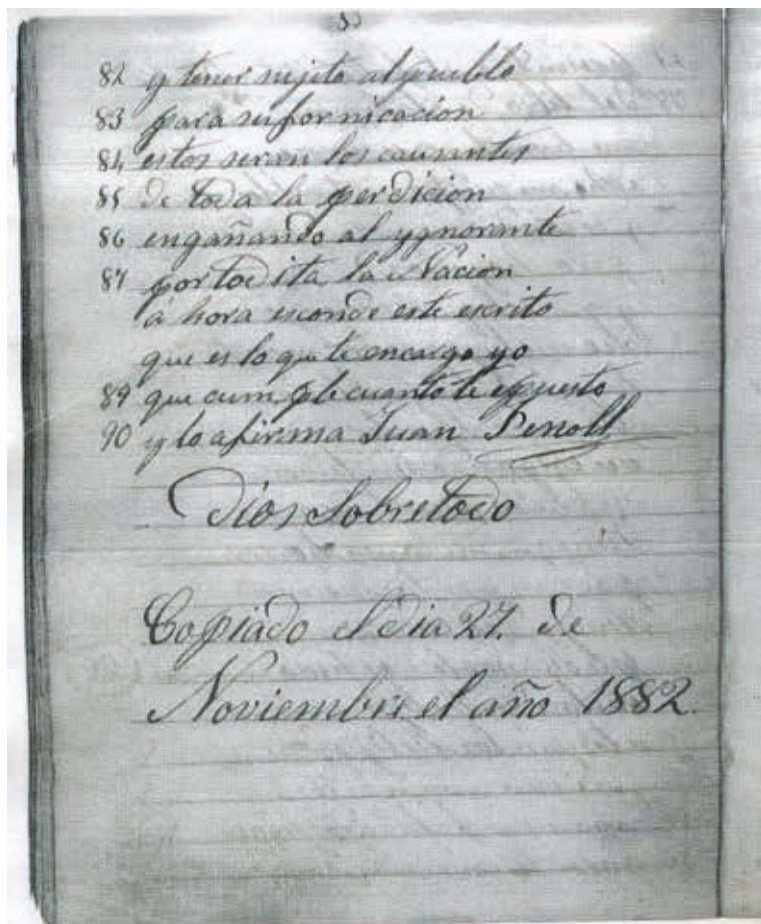 82 y tener sujeto al pueblo
83 para sufornicacion
84 estos seran los causantes
85 de toda la perdicion
86 engañando al ygnorante
87 por todita la Nacion
á hora esconde este escrito
que es lo que te encargo yo
89 que cumple cuanto te espuesto
90 y lo afirma Juan Penoll
Dios Sobretodo
Copiado el dia 27. de
Noviembre el año 1882.